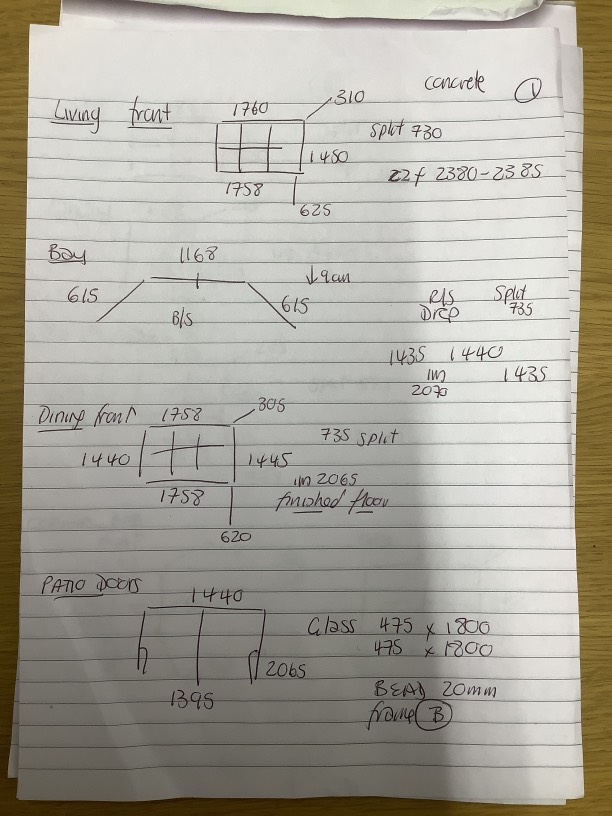 concrete 1
Living front 1760 310
split 730
1450
22f 2380-2385
1758
625
Bay 1168
↓9cm
615 615 R/S Split
B/S Drop 735
1435 1440
im 1435
2070
Dining front 1758 305
735 split
1440 1445
im 2065
1758 finished floor
620
PATIO DOORS
1440
Glass 475 x 1800
475 x 1800
2065
BEAD 20mm
1395
frame B